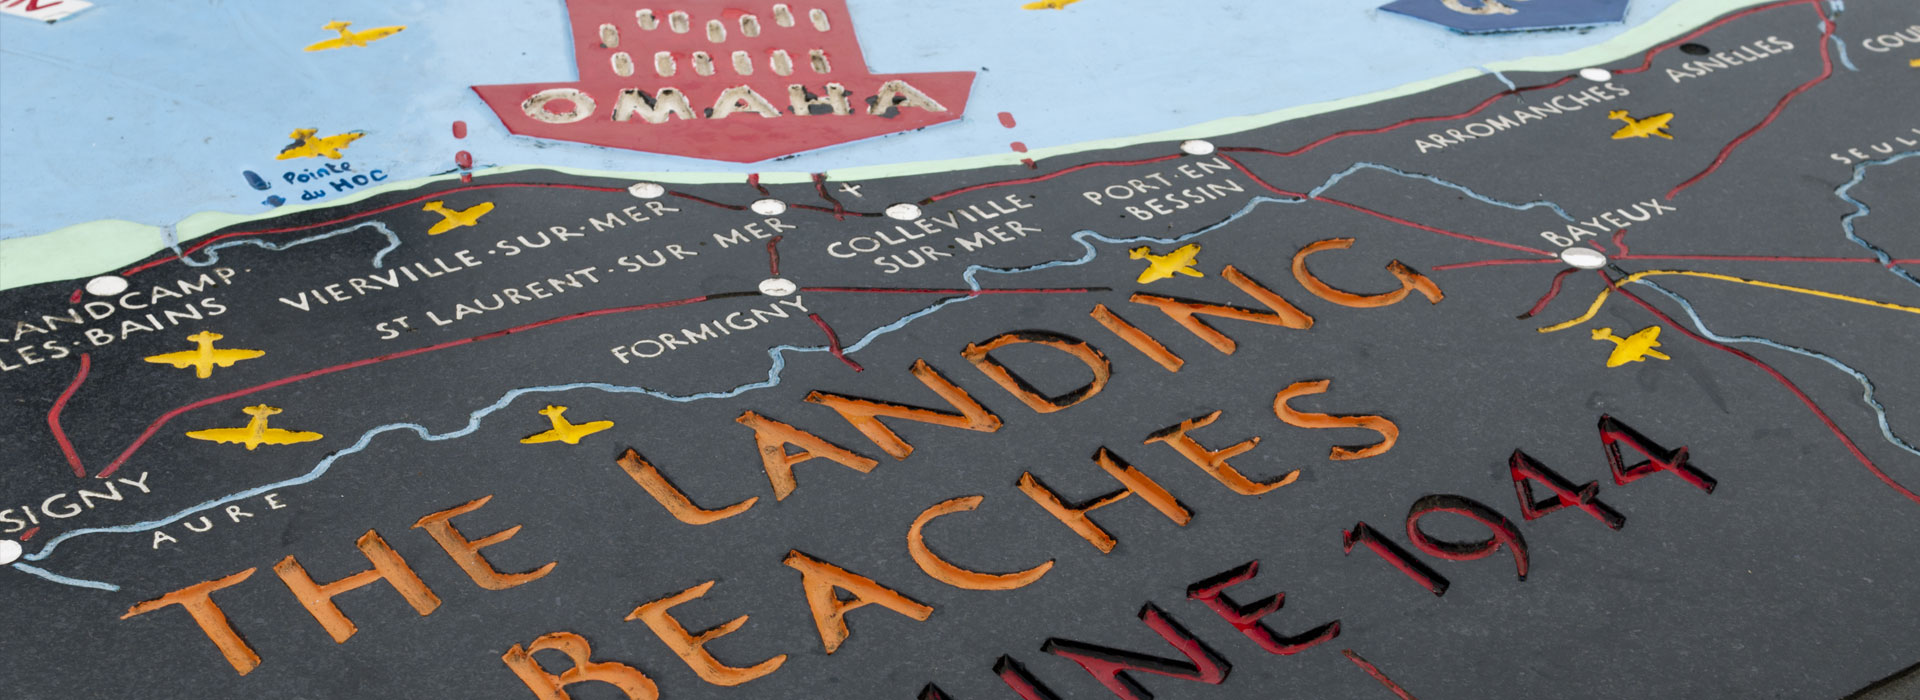 OMAHA
Pointe
du HOC
ASNELLES
ARROMANCHES
PORT·EN
BESSIN
COLLEVILLE·
SUR·MER
VIERVILLE·SUR·MER
ST LAURENT·SUR MER
FORMIGNY
BAYEUX
ANDCAMP·
LES·BAINS
SIGNY
AURE
SEUL
THE LANDING
BEACHES
INE 1944